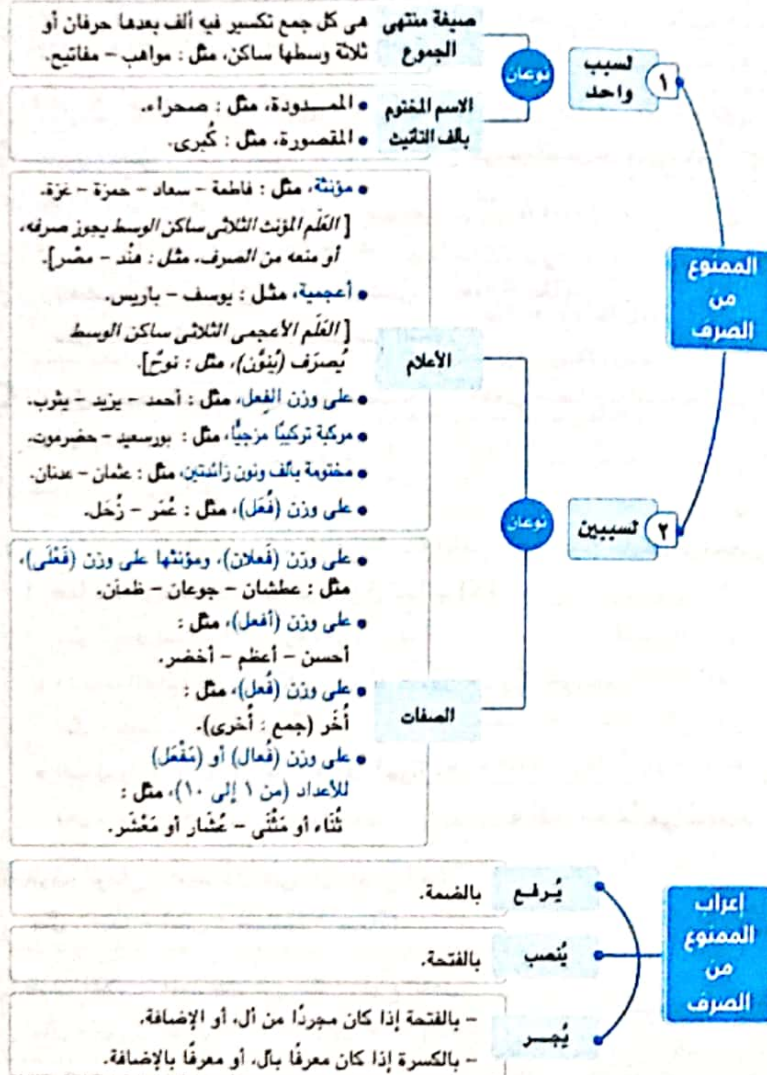 الممنوع
من
الصرف
١
لسبب
واحد
نوعان
صيغة منتهى
الجموع
هى كل جمع تكسير فيه ألف بعدها حرفان أو
ثلاثة وسطها ساكن، مثل : مواهب – مفاتيح.
الاسم المختوم
بألف التأنيث
• الممـدودة، مثل : صحراء.
• المقصورة، مثل : كُبرى.
٢
لسببين
نوعان
الأعلام
• مؤنثة، مثل : فاطمة – سعاد – حمزة – غزة.
[ العَلَم المؤنث الثلاثى ساكن الوسط يجوز صرفه،
أو منعه من الصرف، مثل : هنْد – مصْر].
• أعجمية، مثل : يوسف – باريس.
[ العَلَم الأعجمى الثلاثى ساكن الوسط
يُصرَف (يُنوَّن)، مثل : نوحٌ].
• على وزن الفعل، مثل : أحمد – يزيد – يثرب.
• مركبة تركيبًا مزجيًّا، مثل : بورسعيد – حضرموت.
• مختومة بألف ونون زائدتين، مثل : عثمان – عدنان.
• على وزن (فُعَل)، مثل : عُمَر – زُحَل.
الصفات
• على وزن (فَعلان)، ومؤنثها على وزن (فَعْلَى)،
مثل : عطشان – جوعان – ظمآن.
• على وزن (أفعل)، مثل :
أحسن – أعظم – أخضر.
• على وزن (فُعل)، مثل :
أُخَر (جمع : أُخرى).
• على وزن (فُعال) أو (مَفْعَل)
للأعداد (من ١ إلى ١٠)، مثل :
ثُنَاء أو مَثْنَى – عُشَار أو مَعْشَر.
إعراب
الممنوع
من
الصرف
يُـرفـع
بالضمة.
يُنصب
بالفتحة.
يُجــر
– بالفتحة إذا كان مجردًا من أل، أو الإضافة.
– بالكسرة إذا كان معرفًا بأل، أو معرفًا بالإضافة.